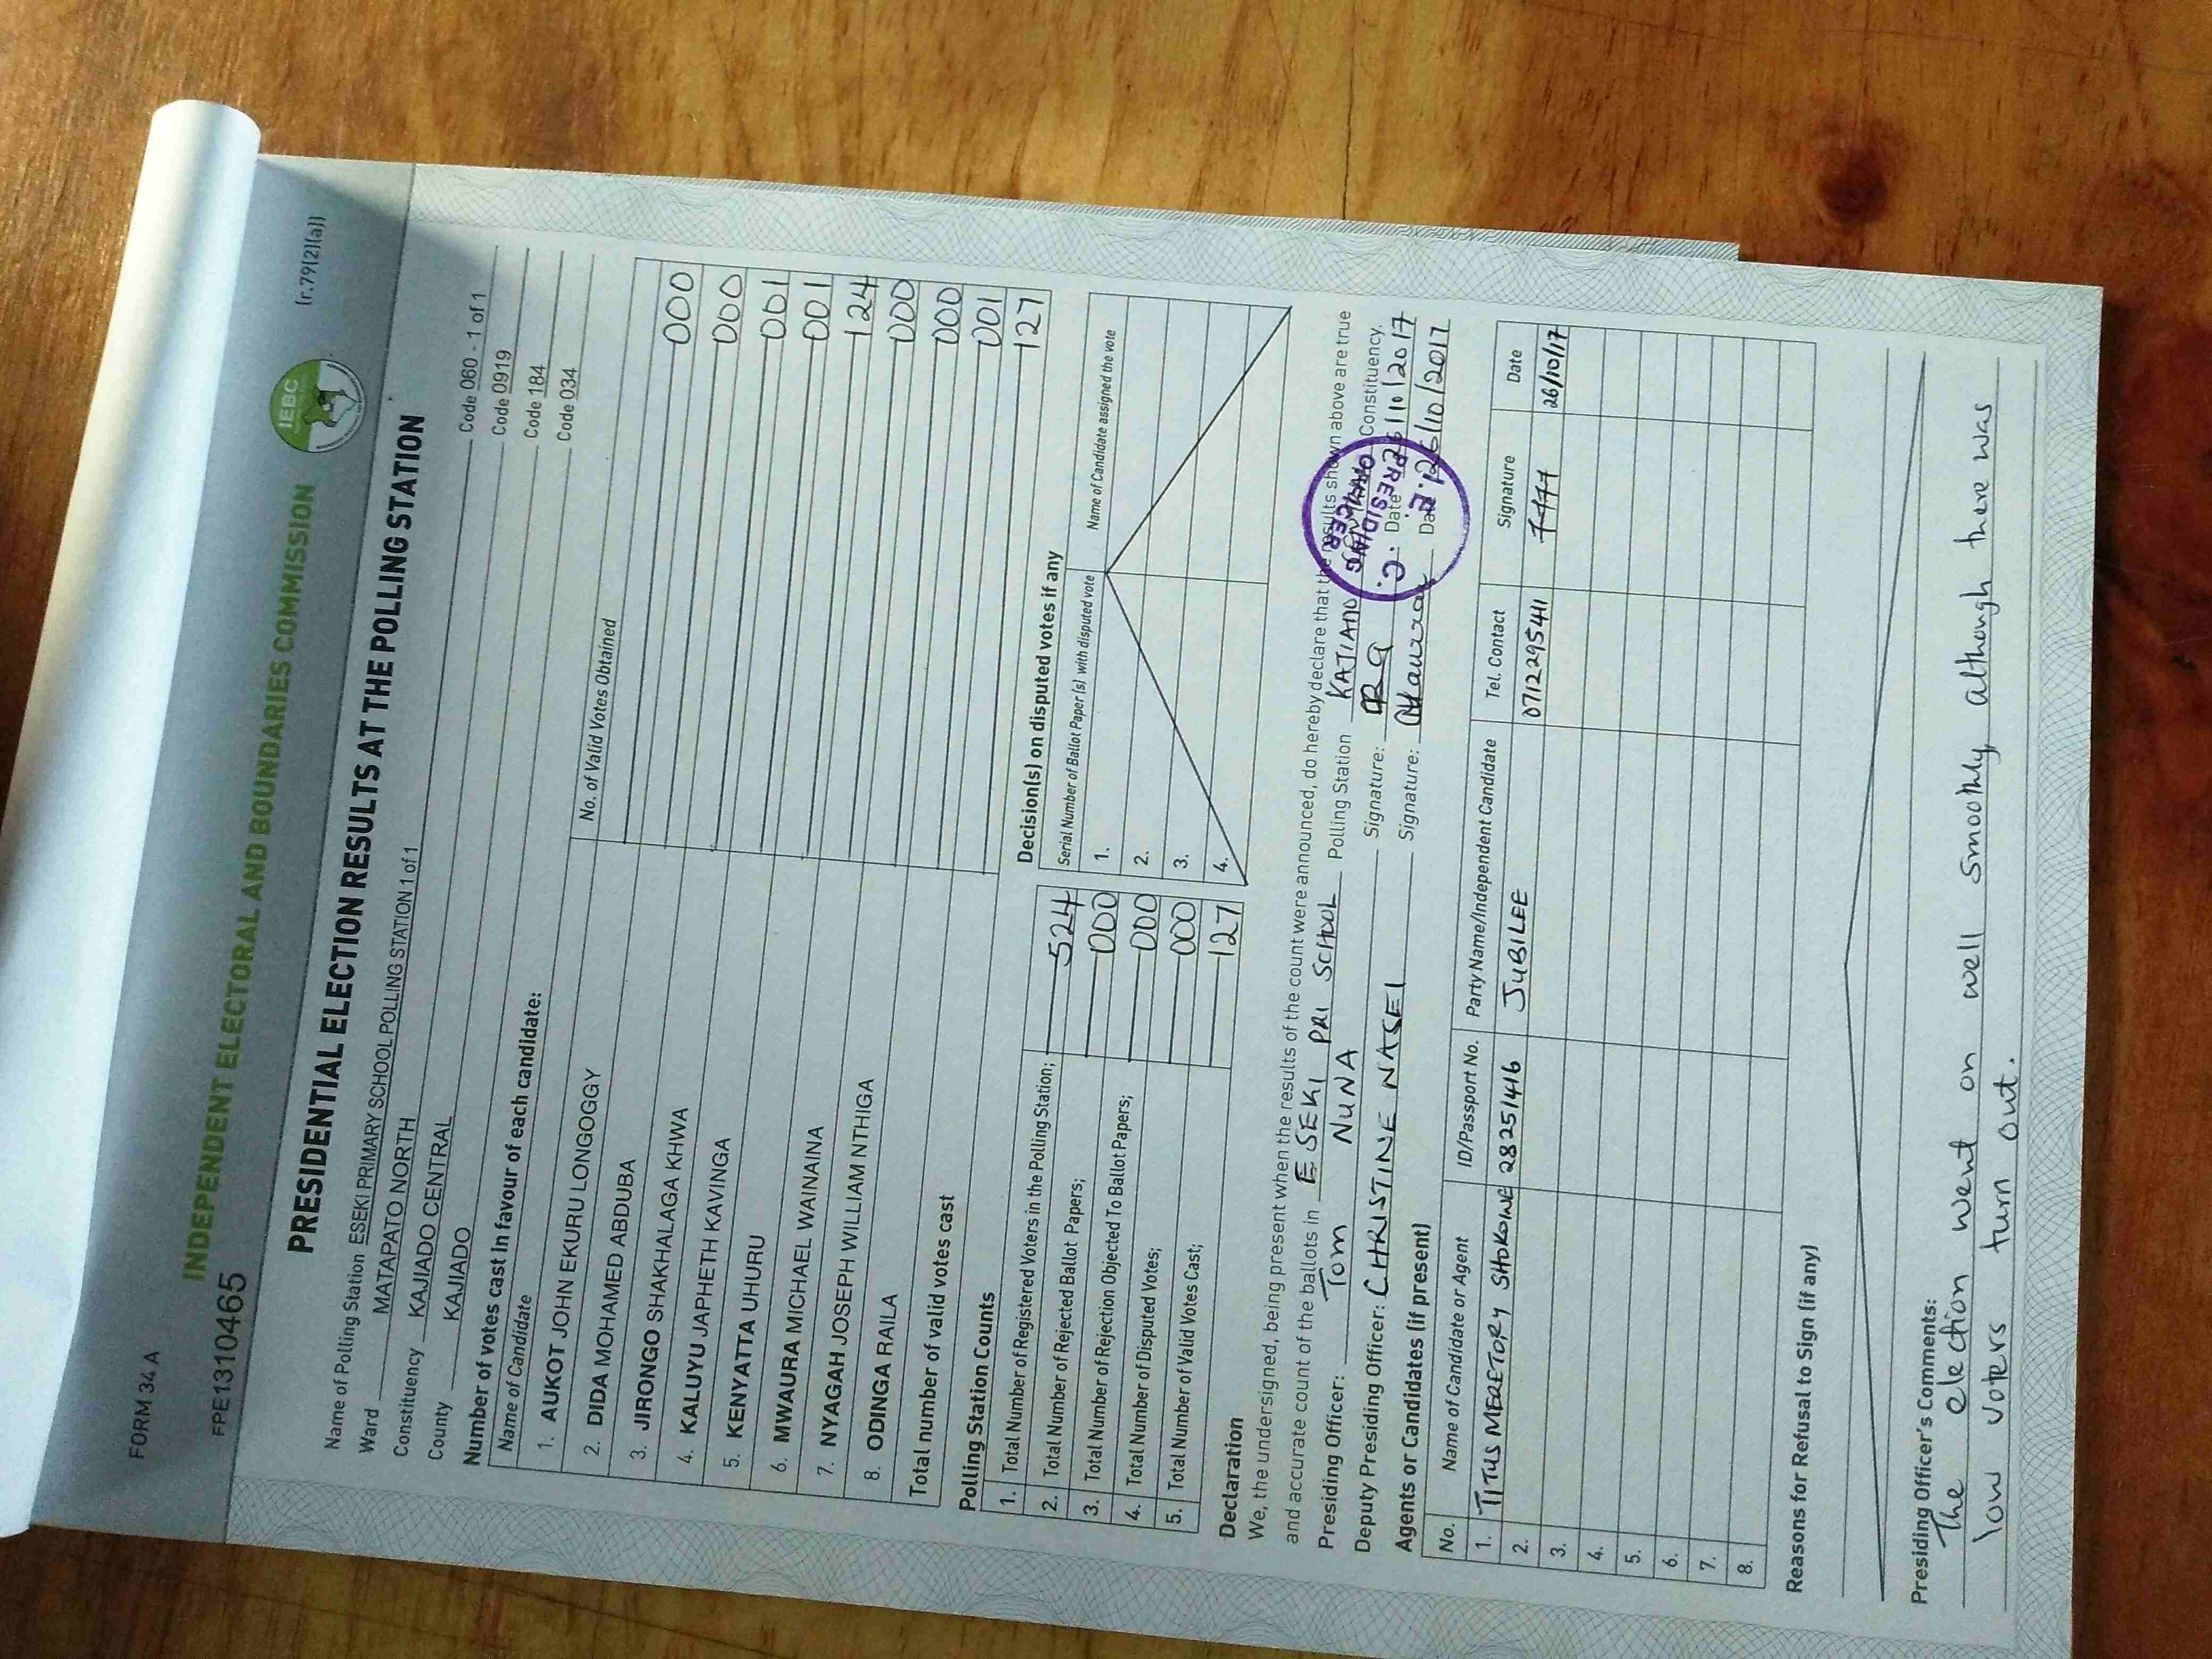 FORM 34 A
FPE1310465
INDEPENDENT ELECTORAL AND BOUNDARIES COMMISSION
IEBC
(r.79(2)(a))
PRESIDENTIAL ELECTION RESULTS AT THE POLLING STATION
Name of Polling Station ESEKI PRIMARY SCHOOL POLLING STATION 1 of 1 Code 060 - 1 of 1
Ward MATAPATO NORTH Code 0919
Constituency KAJIADO CENTRAL Code 184
County KAJIADO Code 034
Number of votes cast in favour of each candidate:
Name of Candidate No. of Valid Votes Obtained
1. AUKOT JOHN EKURU LONGOGGY 000
2. DIDA MOHAMED ABDUBA 000
3. JIRONGO SHAKHALAGA KHWA 001
4. KALUYU JAPHETH KAVINGA 001
5. KENYATTA UHURU 124
6. MWAURA MICHAEL WAINAINA 000
7. NYAGAH JOSEPH WILLIAM NTHIGA 000
8. ODINGA RAILA 001
Total number of valid votes cast 127
Polling Station Counts
1. Total Number of Registered Voters in the Polling Station; 524
2. Total Number of Rejected Ballot Papers; 000
3. Total Number of Rejection Objected To Ballot Papers; 000
4. Total Number of Disputed Votes; 000
5. Total Number of Valid Votes Cast; 127
Decision(s) on disputed votes if any
Serial Number of Ballot Paper(s) with disputed vote Name of Candidate assigned the vote
1.
2.
3.
4.
Declaration
We, the undersigned, being present when the results of the count were announced, do hereby declare that the results shown above are true
and accurate count of the ballots in ESEKI PRI SCHOOL Polling Station KAJIADO CENTRAL Constituency.
Presiding Officer: TOM NUNA Signature: Date 26/10/2017
Deputy Presiding Officer: CHRISTINE NASEI Signature: Date 26/10/2017
I.E.C.
PRESIDING
OFFICER
Agents or Candidates (if present)
No. Name of Candidate or Agent ID/Passport No. Party Name/Independent Candidate Tel. Contact Signature Date
1. TITUS MERETORY SHOKOINE 28251446 JUBILEE 0712295441 26/10/17
2.
3.
4.
5.
6.
7.
8.
Reasons for Refusal to Sign (if any)
Presiding Officer's Comments:
The election went on well smoothly, although there was
low voters turn out.